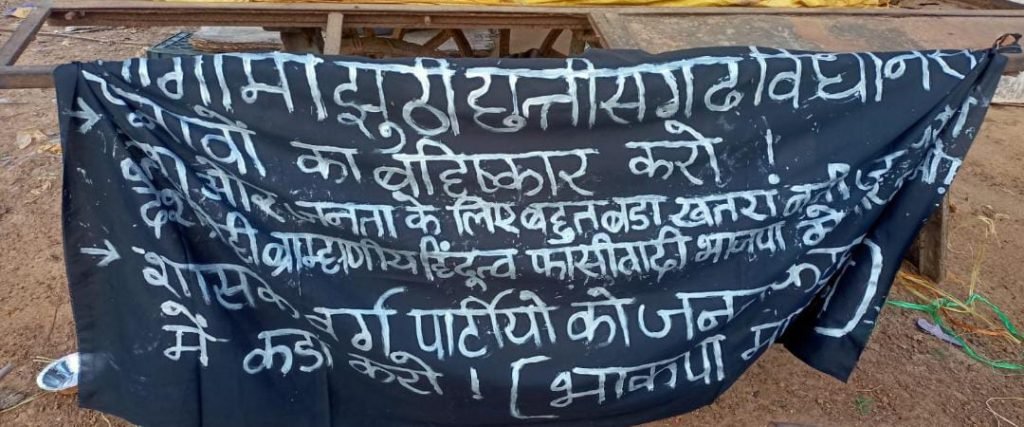 आगामी झुठी छत्तीसगढ विधानस
→ चुनावों का बहिष्कार करो !
और जनता के लिए बहुत बडा खतरा बनी हुई
ब्राम्हणीय हिंदूत्व फांसीवादी भाजपा
→ शासक वर्ग पार्टीयो को जन
में कडा करो ! (भाकपा